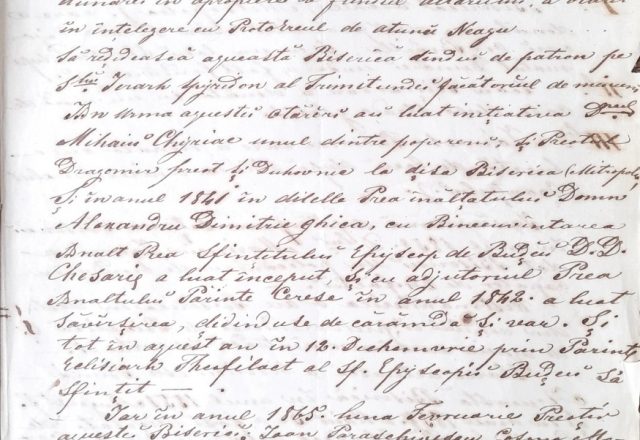 în apropiere cu fondul altarului, a
în înțelegere cu Protoereul de atunci Neagu
să rădidească această Biserică dîndui de patron pe
Sful Ierarh Spyridon al Trimitundei făcătoriul de minuni
În urma aquestei otăriri au luat inițiativa Dnul
Mihaiu unul dintre poporeni, și Preotul
Dragomir fiest și Duhovnic la disa Biserica (Mitropol
Și în anul 1841 în dilelle Prea înălțatului Domn
Alexandru Dimitriu Ghica, cu Binecuvîntarea
Bnalt Prea Sfintitului Episcop de Budĕu D. D.
Chesarie a luat început, și cu adjutoriul Prea
Bnaltului Părinte Ceresc în anul 1842 a luat
săvîrșirea, didinduse de cărămidă și var. Și
tot în aquest an în 12 Dechemvrie prin Părint
Eclisiarh Theofilact al Sf. Episcopii Budĕu Să
Sfințit —
Iar în anul 1865 luna Fevruarie Preotu
aquestei Biserici Ioan Paraschivescu